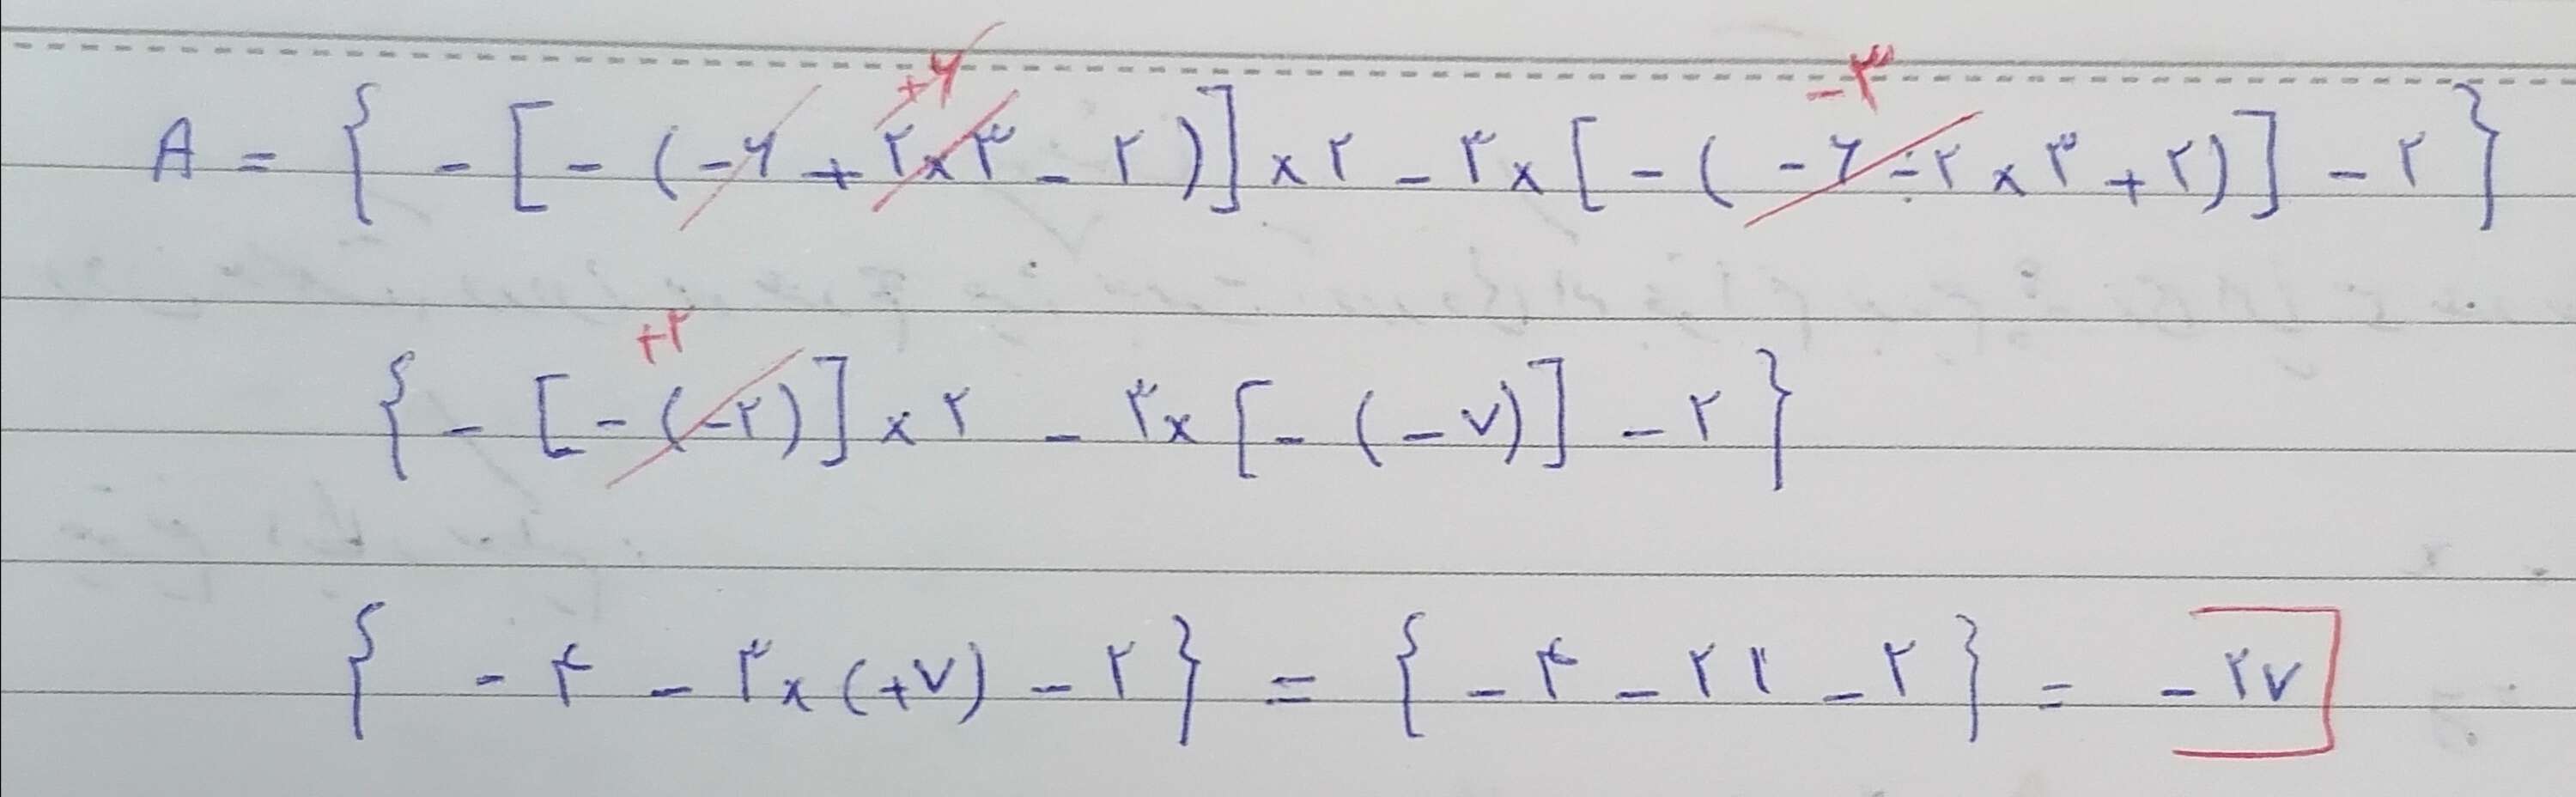 +۶ -۳
A = { - [ - ( -۶ + ۲×۳ - ۲ ) ] × ۲ - ۳× [ - ( -۶÷۲ × ۳ + ۲ ) ] - ۲ }
+۲
{ - [ - ( -۲ ) ] × ۲ - ۳× [ - ( - ۷ ) ] - ۲ }
{ - ۴ - ۳× (+۷) - ۲ } = { - ۴ - ۲۱ - ۲ } = - ۲۷